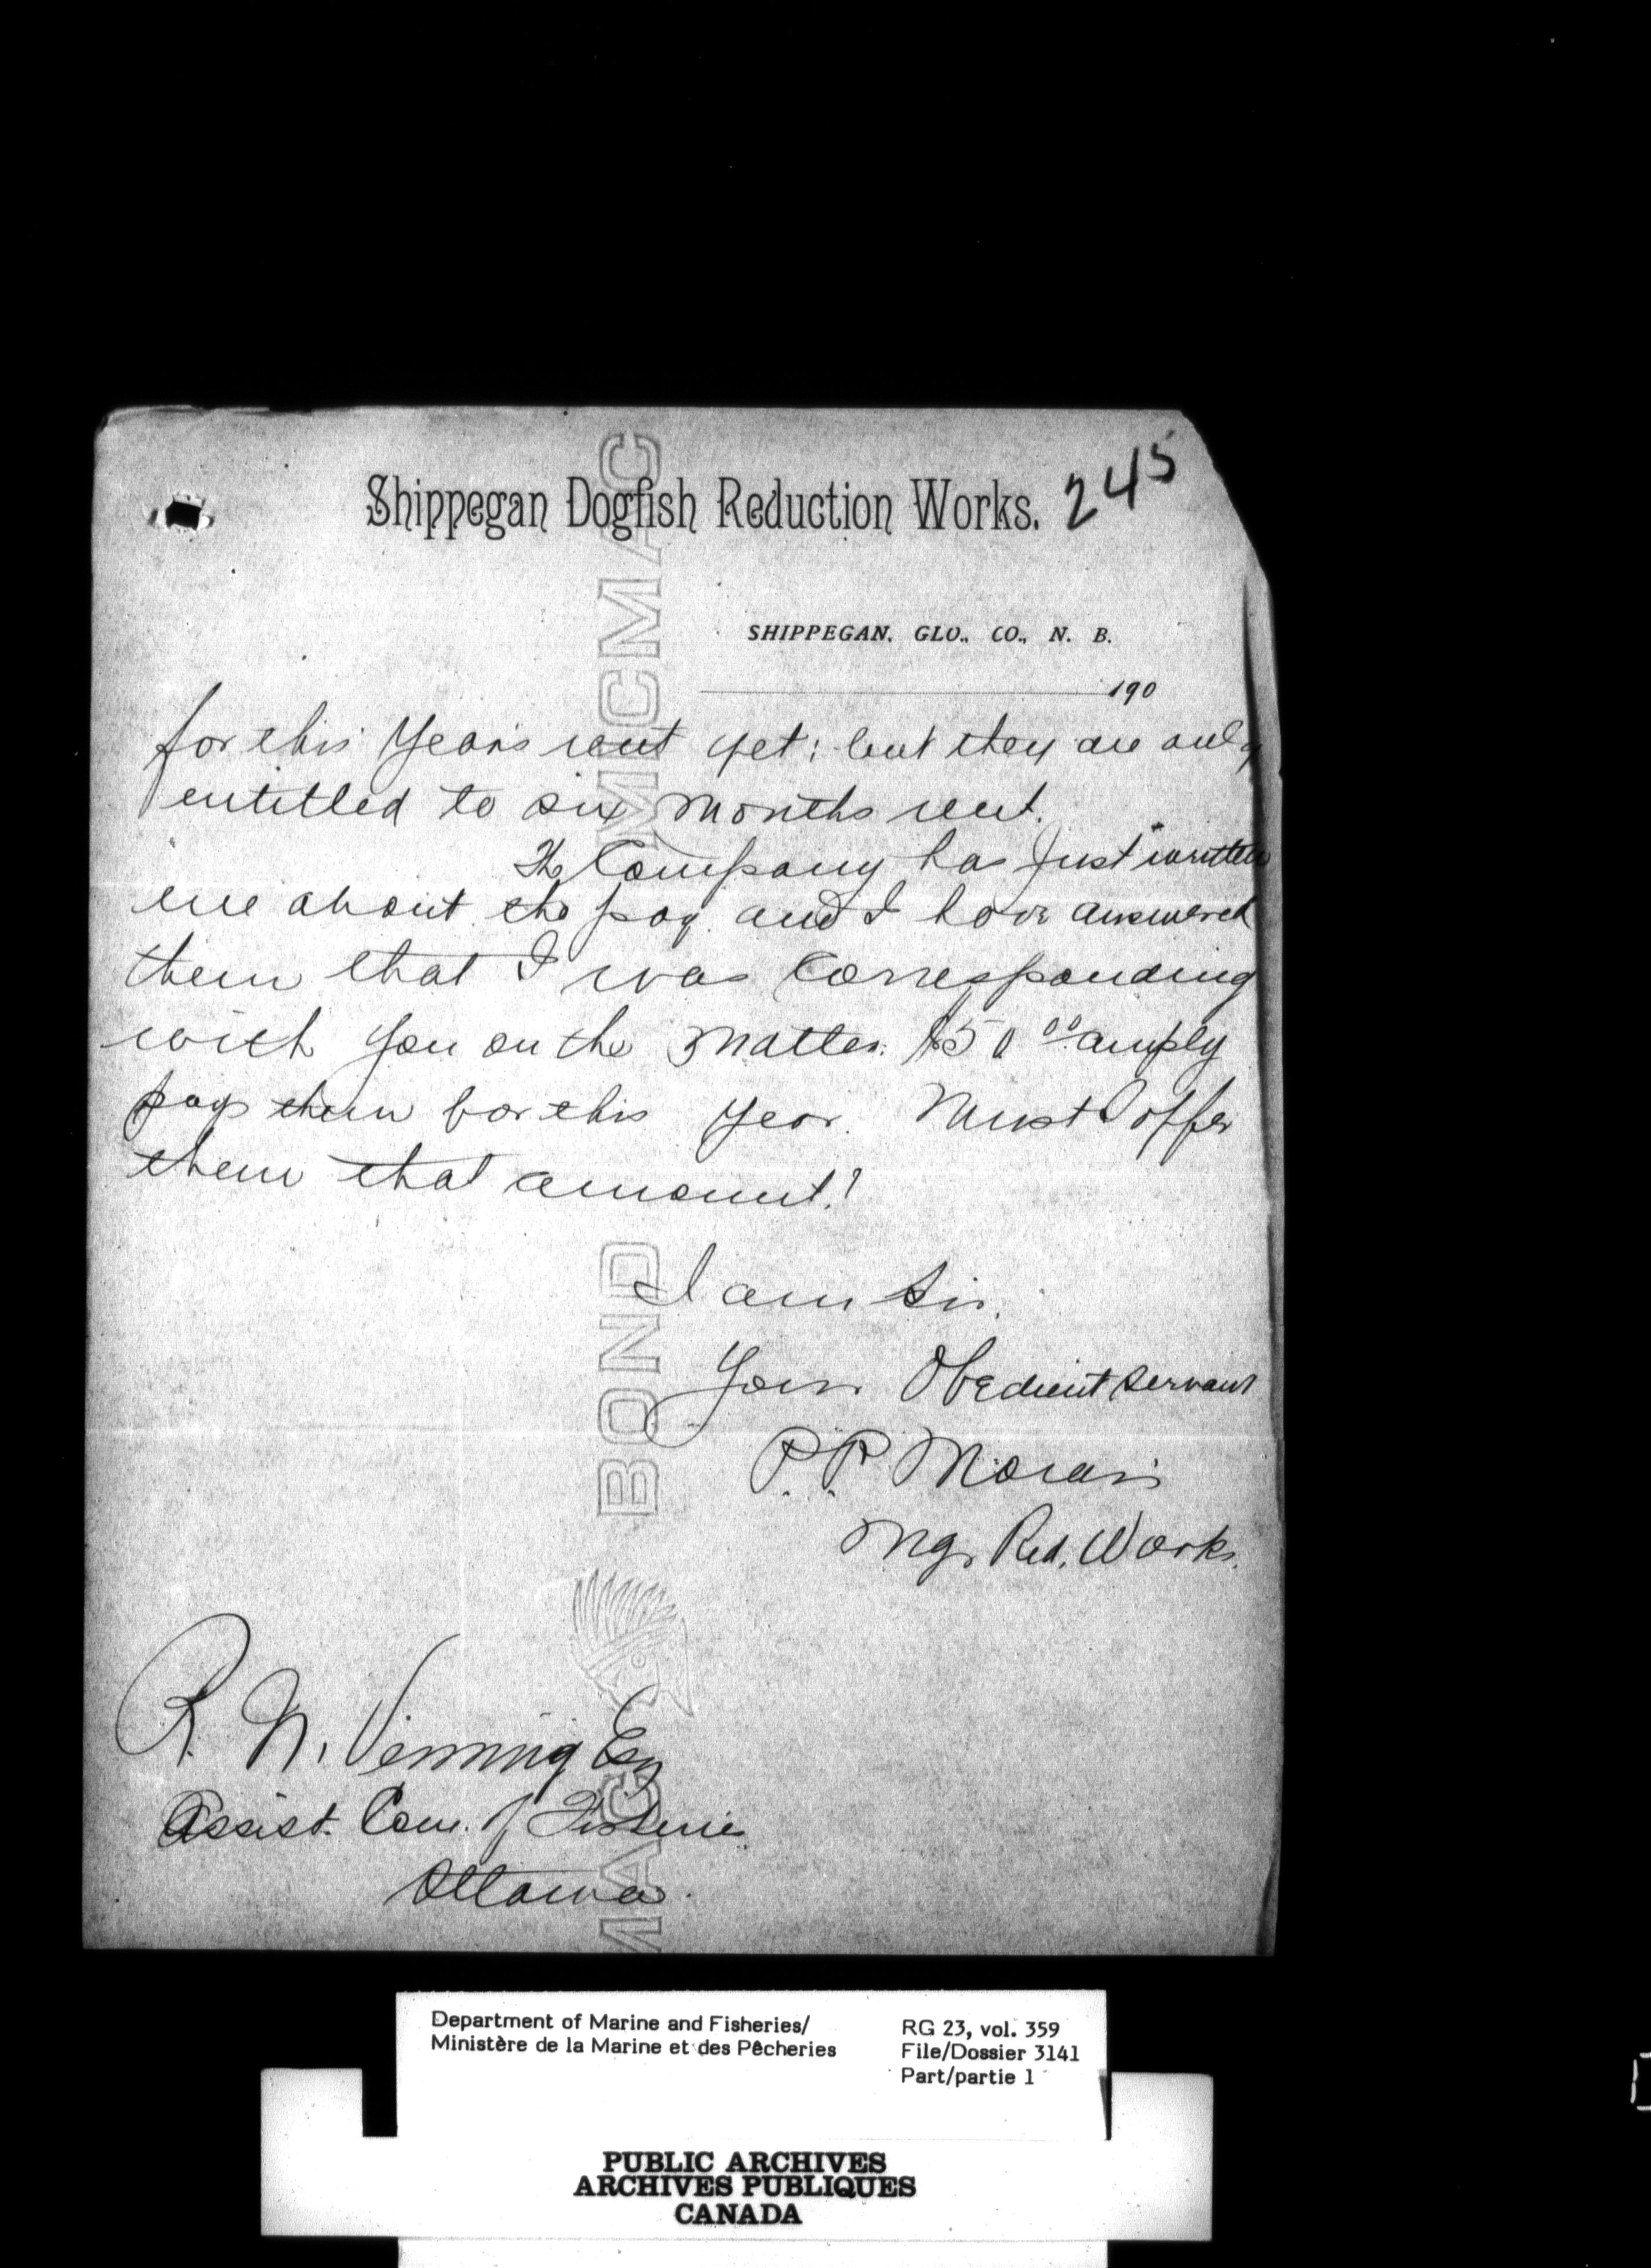 Shippegan Dogfish Reduction Works.
245
SHIPPEGAN, GLO., CO., N. B.
190
for this Years rent yet; but they are only
entitled to six months rent.
The Company has Just written
me about the pay and I have answered
them that I was Corresponding
with you on the matter. $50 00 amply
pays them for this year. Must I offer
them that amount?
I am Sir.
Your Obedient servant
P. P. Morais
Mgr Red. Works.
R. N. Venning Esq
Assist. Com. of Fisheries
Ottawa.
MICMAC
BOND
MAC
Department of Marine and Fisheries/
Ministère de la Marine et des Pêcheries
RG 23, vol. 359
File/Dossier 3141
Part/partie 1
PUBLIC ARCHIVES
ARCHIVES PUBLIQUES
CANADA